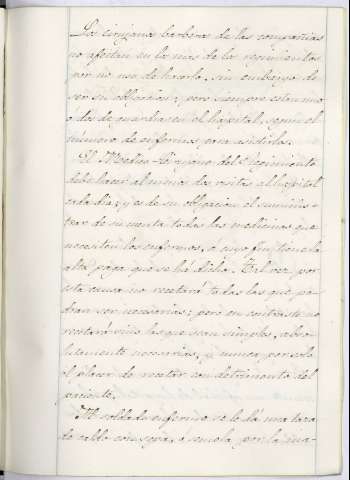 Los cirujanos barberos de las compañias
no afeitan en la mas de los regimientos
por no uso de hacerlo, sin embargo de
ser su obligacion; pero siempre estan uno
ó dos de guardia en el hospital, segun el
número de enfermos para asistirlos.
El Medico-Cirujano del Regimiento
debe hacer al menos dos visitas al hospital
cada dia; y es de su obligacion el suminis-
trar de su cuenta todas las medicinas que
necesiten los enfermos, á cuyo fin tiene la
alta paga que se há dicho. Tal vez por
esta causa no recetará todas las que pu-
dran ser necesarias; pero en contraste no
recetará sino las que sean simples, abso-
lutamente necesarias, y nunca por solo
el placer de recetar con detrimento del
paciente.
Al soldado enfermo se le dá una taza
de caldo con sopa, ó semola, por la ma-